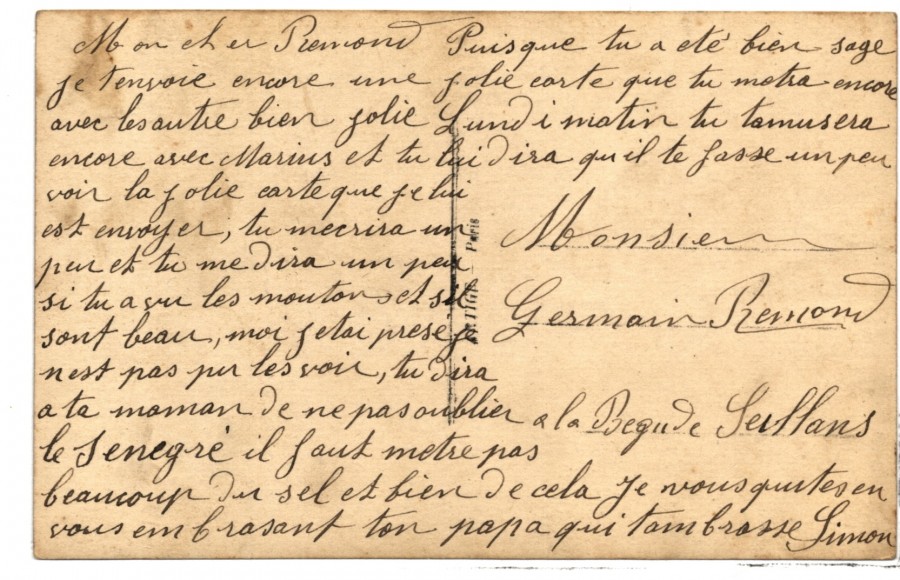 Mon cher Remond Puisque tu a eté bien sage
je t'envoie encore une jolie carte que tu metra encore
avec les autre bien jolie Lundi matin tu tamusera
encore avec Marius et tu lui dira qu il te fasse un peu
voir la jolie carte que je lui
est envoyer, tu mecrira un
peu et tu me dira un peu
si tu a vu les mouton et sil
sont beau, moi jetai presé je
nest pas pu les voir, tu dira
a ta maman de ne pas oublier
le Senegré il faut metre pas
beaucoup du sel et bien de cela Je vous quites en
vous embrasant ton papa qui tambrasse Simon
Paris
Monsieur
Germain Remond
a la Begude Seillans